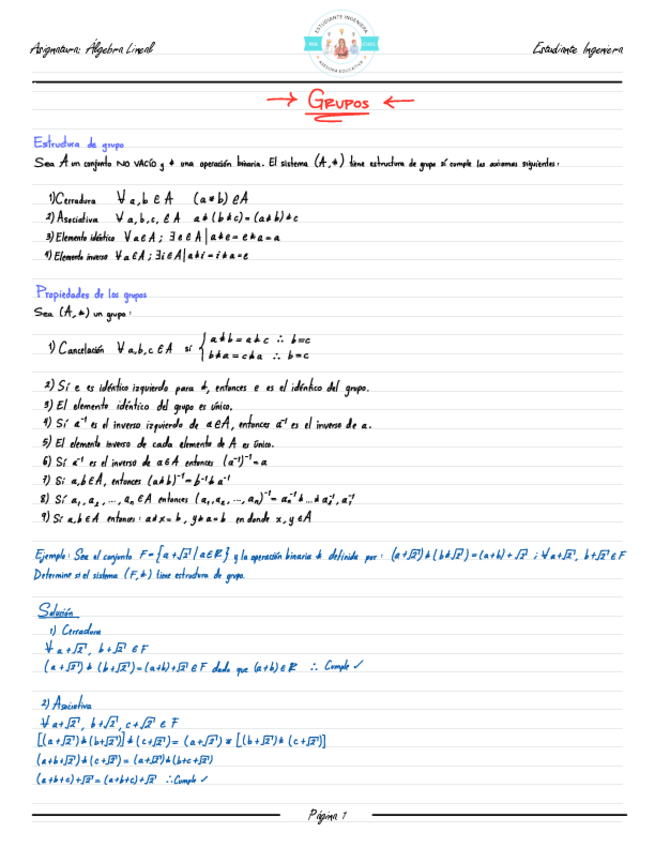 Asignatura: Álgebra Lineal
ESTUDIANTE INGENIERA
ASESORÍA EDUCATIVA
Estudiante Ingeniera
→ GRUPOS ←
Estructura de grupo
Sea A un conjunto NO VACÍO y * una operación binaria. El sistema (A,*) tiene estructura de grupo sí cumple los axiomas siguientes:
1) Cerradura ∀ a,b ∈ A (a*b) ∈ A
2) Asociativa ∀ a,b,c, ∈ A a*(b*c)=(a*b)*c
3) Elemento idéntico ∀ a∈A; ∃ e∈A | a*e=e*a=a
4) Elemento inverso ∀ a∈A; ∃ i∈A | a*i=i*a=e
Propiedades de los grupos
Sea (A,*) un grupo:
1) Cancelación ∀ a,b,c ∈ A sí { a*b=a*c ∴ b=c
b*a=c*a ∴ b=c
2) Sí e es idéntico izquierdo para *, entonces e es el idéntico del grupo.
3) El elemento idéntico del grupo es único.
4) Sí a⁻¹ es el inverso izquierdo de a∈A, entonces a⁻¹ es el inverso de a.
5) El elemento inverso de cada elemento de A es único.
6) Sí a⁻¹ es el inverso de a∈A entonces (a⁻¹)⁻¹=a
7) Si a,b∈A, entonces (a*b)⁻¹=b⁻¹*a⁻¹
8) Sí a₁, a₂, ..., aₙ ∈ A entonces (a₁, a₂, ..., aₙ)⁻¹= aₙ⁻¹*...*a₂⁻¹, a₁⁻¹
9) Si a,b∈A entonces: a*x=b, y*a=b en donde x,y∈A
Ejemplo: Sea el conjunto F={a+√2 | a∈R} y la operación binaria * definida por: (a+√2)*(b+√2)=(a+b)+√2 ; ∀ a+√2, b+√2 ∈ F
Determine si el sistema (F,*) tiene estructura de grupo.
Solución
1) Cerradura
∀ a+√2, b+√2 ∈ F
(a+√2)*(b+√2)=(a+b)+√2 ∈ F dado que (a+b)∈R ∴ Cumple ✓
2) Asociativa
∀ a+√2, b+√2, c+√2 ∈ F
[(a+√2)*(b+√2)]*(c+√2)=(a+√2)*[(b+√2)*(c+√2)]
(a+b+√2)*(c+√2)=(a+√2)*(b+c+√2)
(a+b+c)+√2=(a+b+c)+√2 ∴ Cumple ✓
Página 1